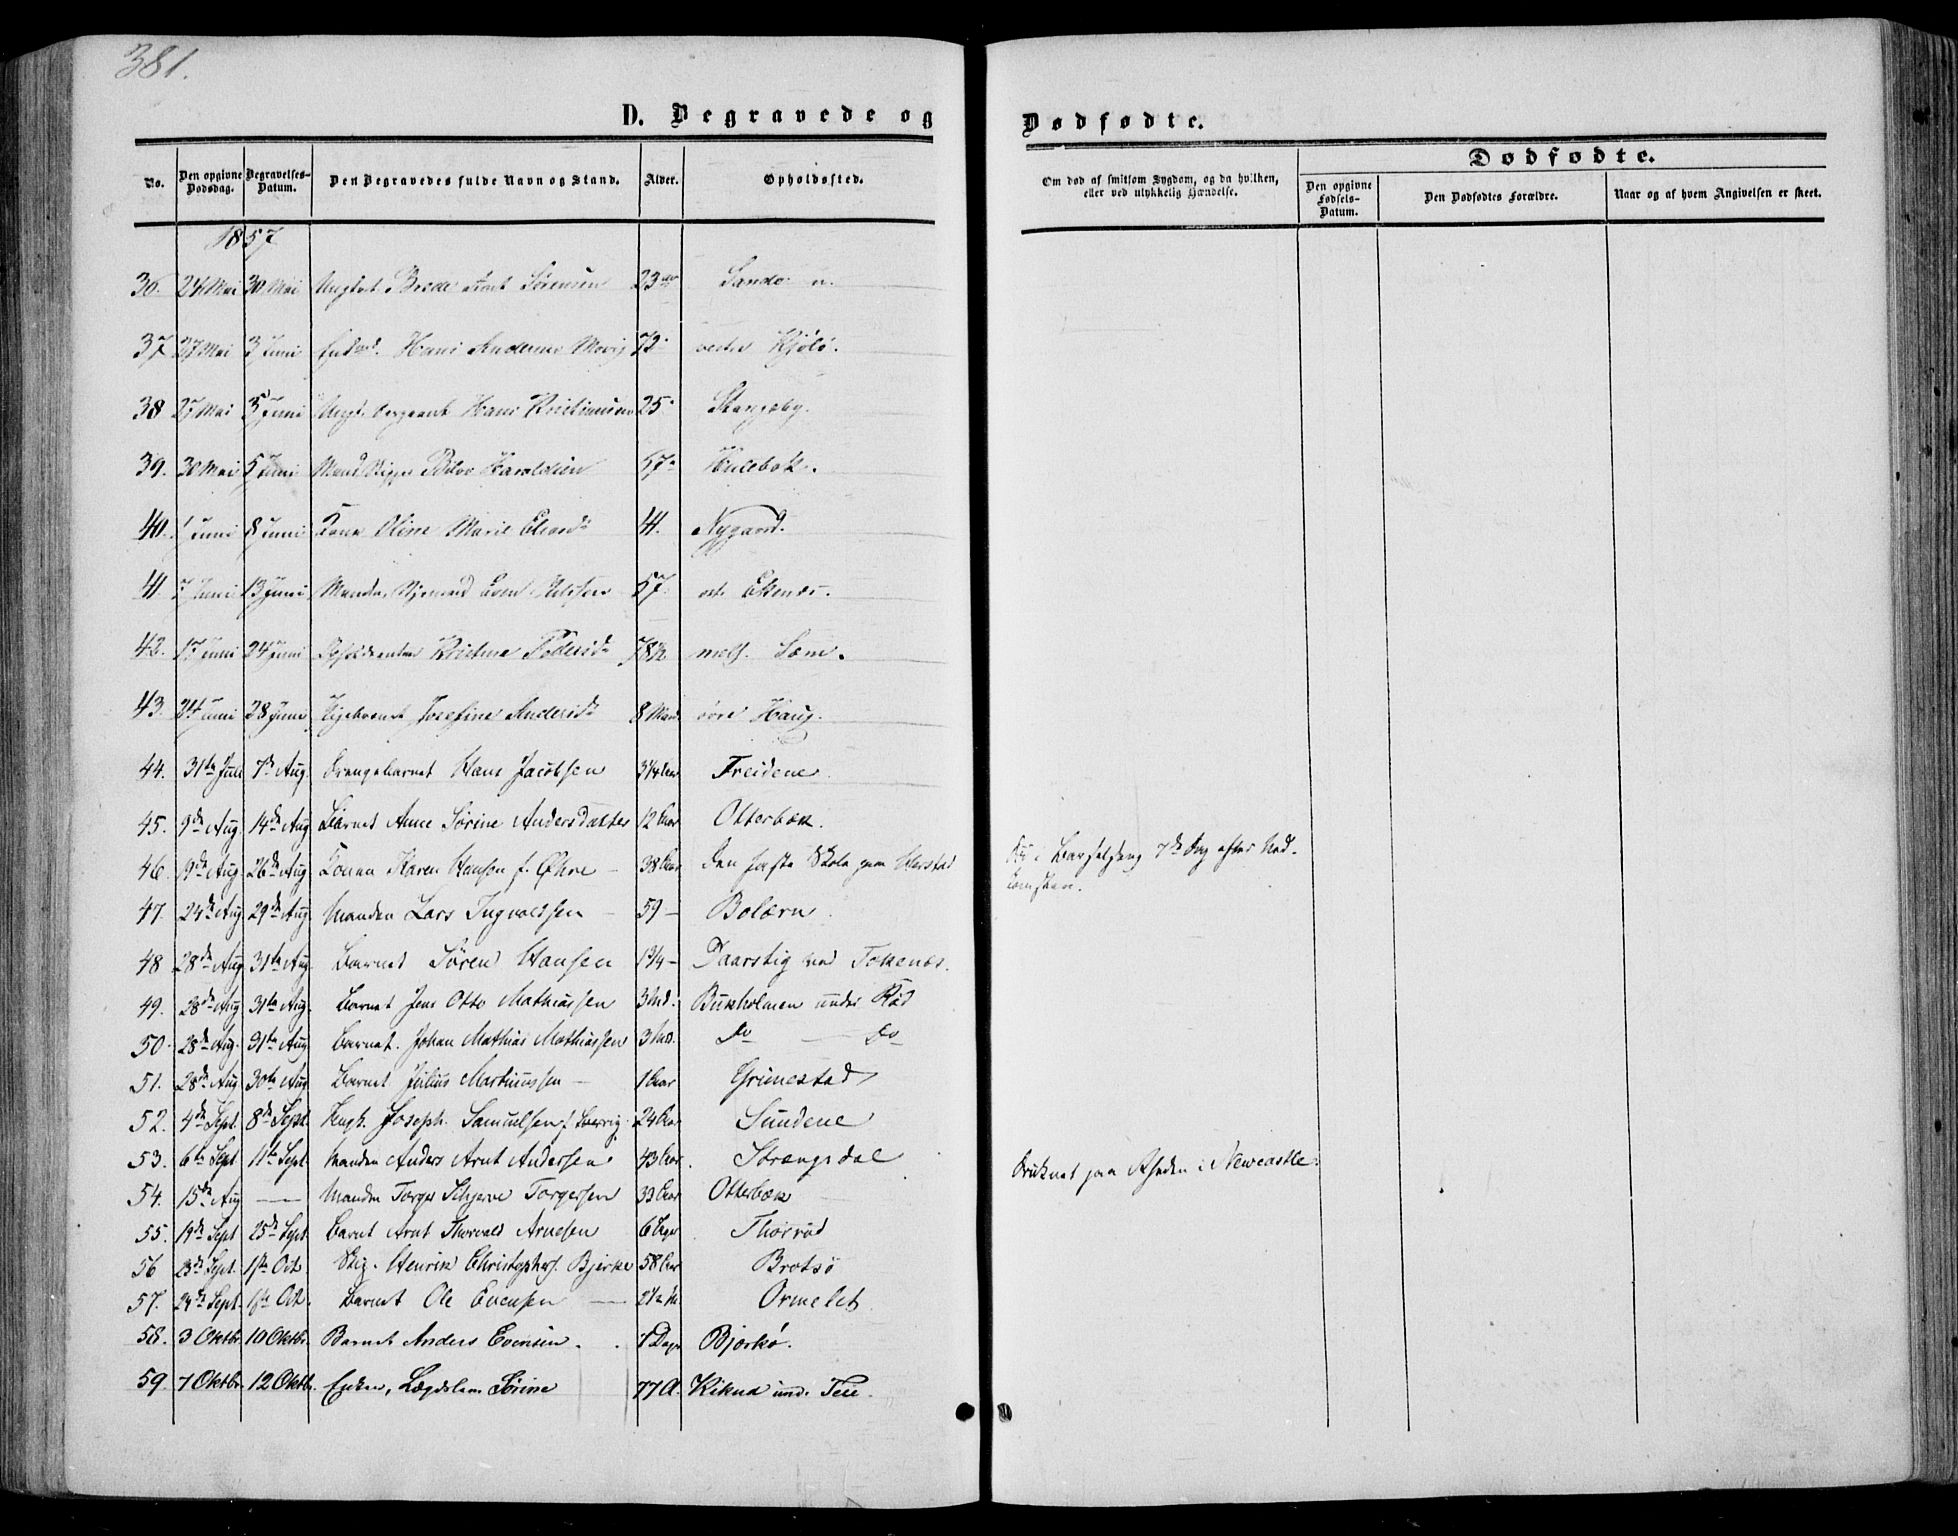 381.
D. Begravede og
Dødfødte.
No.
Den opgivne Dødsdag.
Begravelses-Datum.
Den Begravedes fulde Navn og Stand.
Alder.
Opholdssted.
Om død af smitsom Sygdom, og da hvilken, eller ved ulykkelig Hændelse.
Dødfødte.
Den opgivne Fødsels-Datum.
Den Dødfødtes Forældre.
Naar og af hvem Angivelsen er skeet.
1857
36. 24 Mai 30 Mai Sørensen 23
37 27 Mai 3 Juni Hans Andersen 72 Kjølø.
38 27 Mai 5 Juni Sergeant Hans Kristiansen 25
39. 30 Mai 5 Juni Haraldsen 57 Hulebak.
40. 1 Juni 8 Juni Kone Oline Marie 41. Nygaard.
41 7 Juni 13 Juni Manden Even 57. Ekenæs.
42. 17 Juni 24 Juni Kristine Pedersd 78½ mell. Sæm.
43. 24 Juni 28 Juni Pigebarnet Josefine Andersd 8 Maan. søre Haug.
44. 31te Juli 7de Aug. Drengebarnet Hans Jacobsen 3¼ Aar Freidene
45. 9de Aug. 14de Aug Barnet Anne Sørine Andersdatter 12 Aar Otterbæk.
46. 19de Aug. 26de Aug Konen Karen Hansen f. Øhre 38 Aar den faste Skole paa
Død i Barselseng 7de Dag efter Ned-
komsten.
47. 24de Aug 29de Aug. Manden Lars Ingvaldsen 59 — Bolærn
48 28de Aug 31te Aug. Barnet Søren Hansen 1¾ — Paarstig ved Tokenæs.
49. 28de Aug 31te Aug. Barnet Jens Otto Mathiassen 3 Md. Bukholmen under Rød
50. 28de Aug. 31te Aug Barnet Johan Mathias Mathiassen 3 Md. Do — Do
51. 28de Aug 30te Aug Barnet Julius Martinussen — 1 Aar Grimestad
52. 4de Sept. 8de Sept. Ungk. Joseph Samuelsen f. 24 Aar Sundene
53. 6te Sept 11te Sept. Manden Anders Arnt Andersen 43 Aar. Strengsdal
Druknet paa Rheden i Newcastle.
54. 15de Aug — Manden Torger Torgersen 33 Aar Otterbæk
55. 19de Sept 25de Sept Barnet Arnt Thorvald Arnesen 6 Uger Thorrød
56 23de Sept. 1ste Oct. Henrik Christophers. Bjerke 58 Aar Bratsø
57. 24de Sept. 1ste Oct. Barnet Ole Evensen — 2½ M. Ormelet
58. 3 Oktbr. 10 Oktbr. Barnet Anders Evensen. 7 Dage Bjerkø.
59. 7 Oktbr. 12 Oktbr. Enken, Lægdslem Sørine 77 A. Kikud und. Teie.